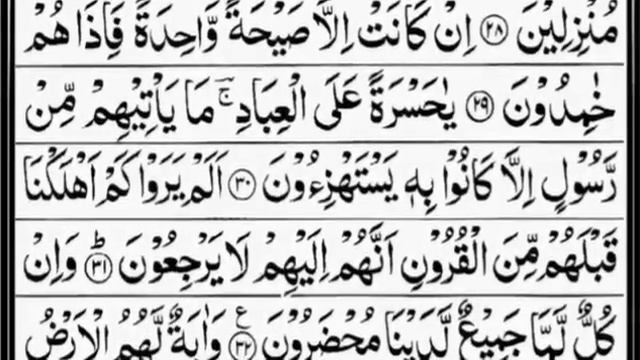 مُنْزِلِيْنَ ۝۲۸ اِنْ كَانَتْ اِلَّا صَيْحَةً وَّاحِدَةً فَاِذَا هُمْ
خٰمِدُوْنَ ۝۲۹ يٰحَسْرَةً عَلَى الْعِبَادِ ۚ مَا يَاْتِيْهِمْ مِّنْ
رَّسُوْلٍ اِلَّا كَانُوْا بِهٖ يَسْتَهْزِءُوْنَ ۝۳۰ اَلَمْ يَرَوْا كَمْ اَهْلَكْنَا
قَبْلَهُمْ مِّنَ الْقُرُوْنِ اَنَّهُمْ اِلَيْهِمْ لَا يَرْجِعُوْنَ ۝۳۱ؕ وَاِنْ
كُلٌّ لَّمَّا جَمِيْعٌ لَّدَيْنَا مُحْضَرُوْنَ ۝۳۲ ع وَاٰيَةٌ لَّهُمُ الْاَرْضُ